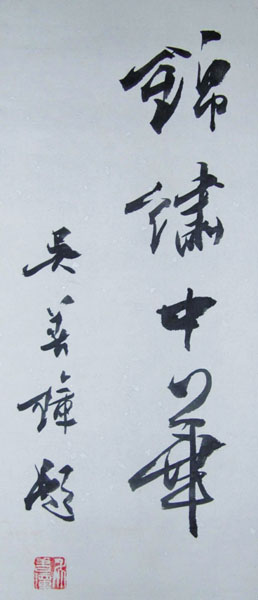 錦繡中華
吳善璋題